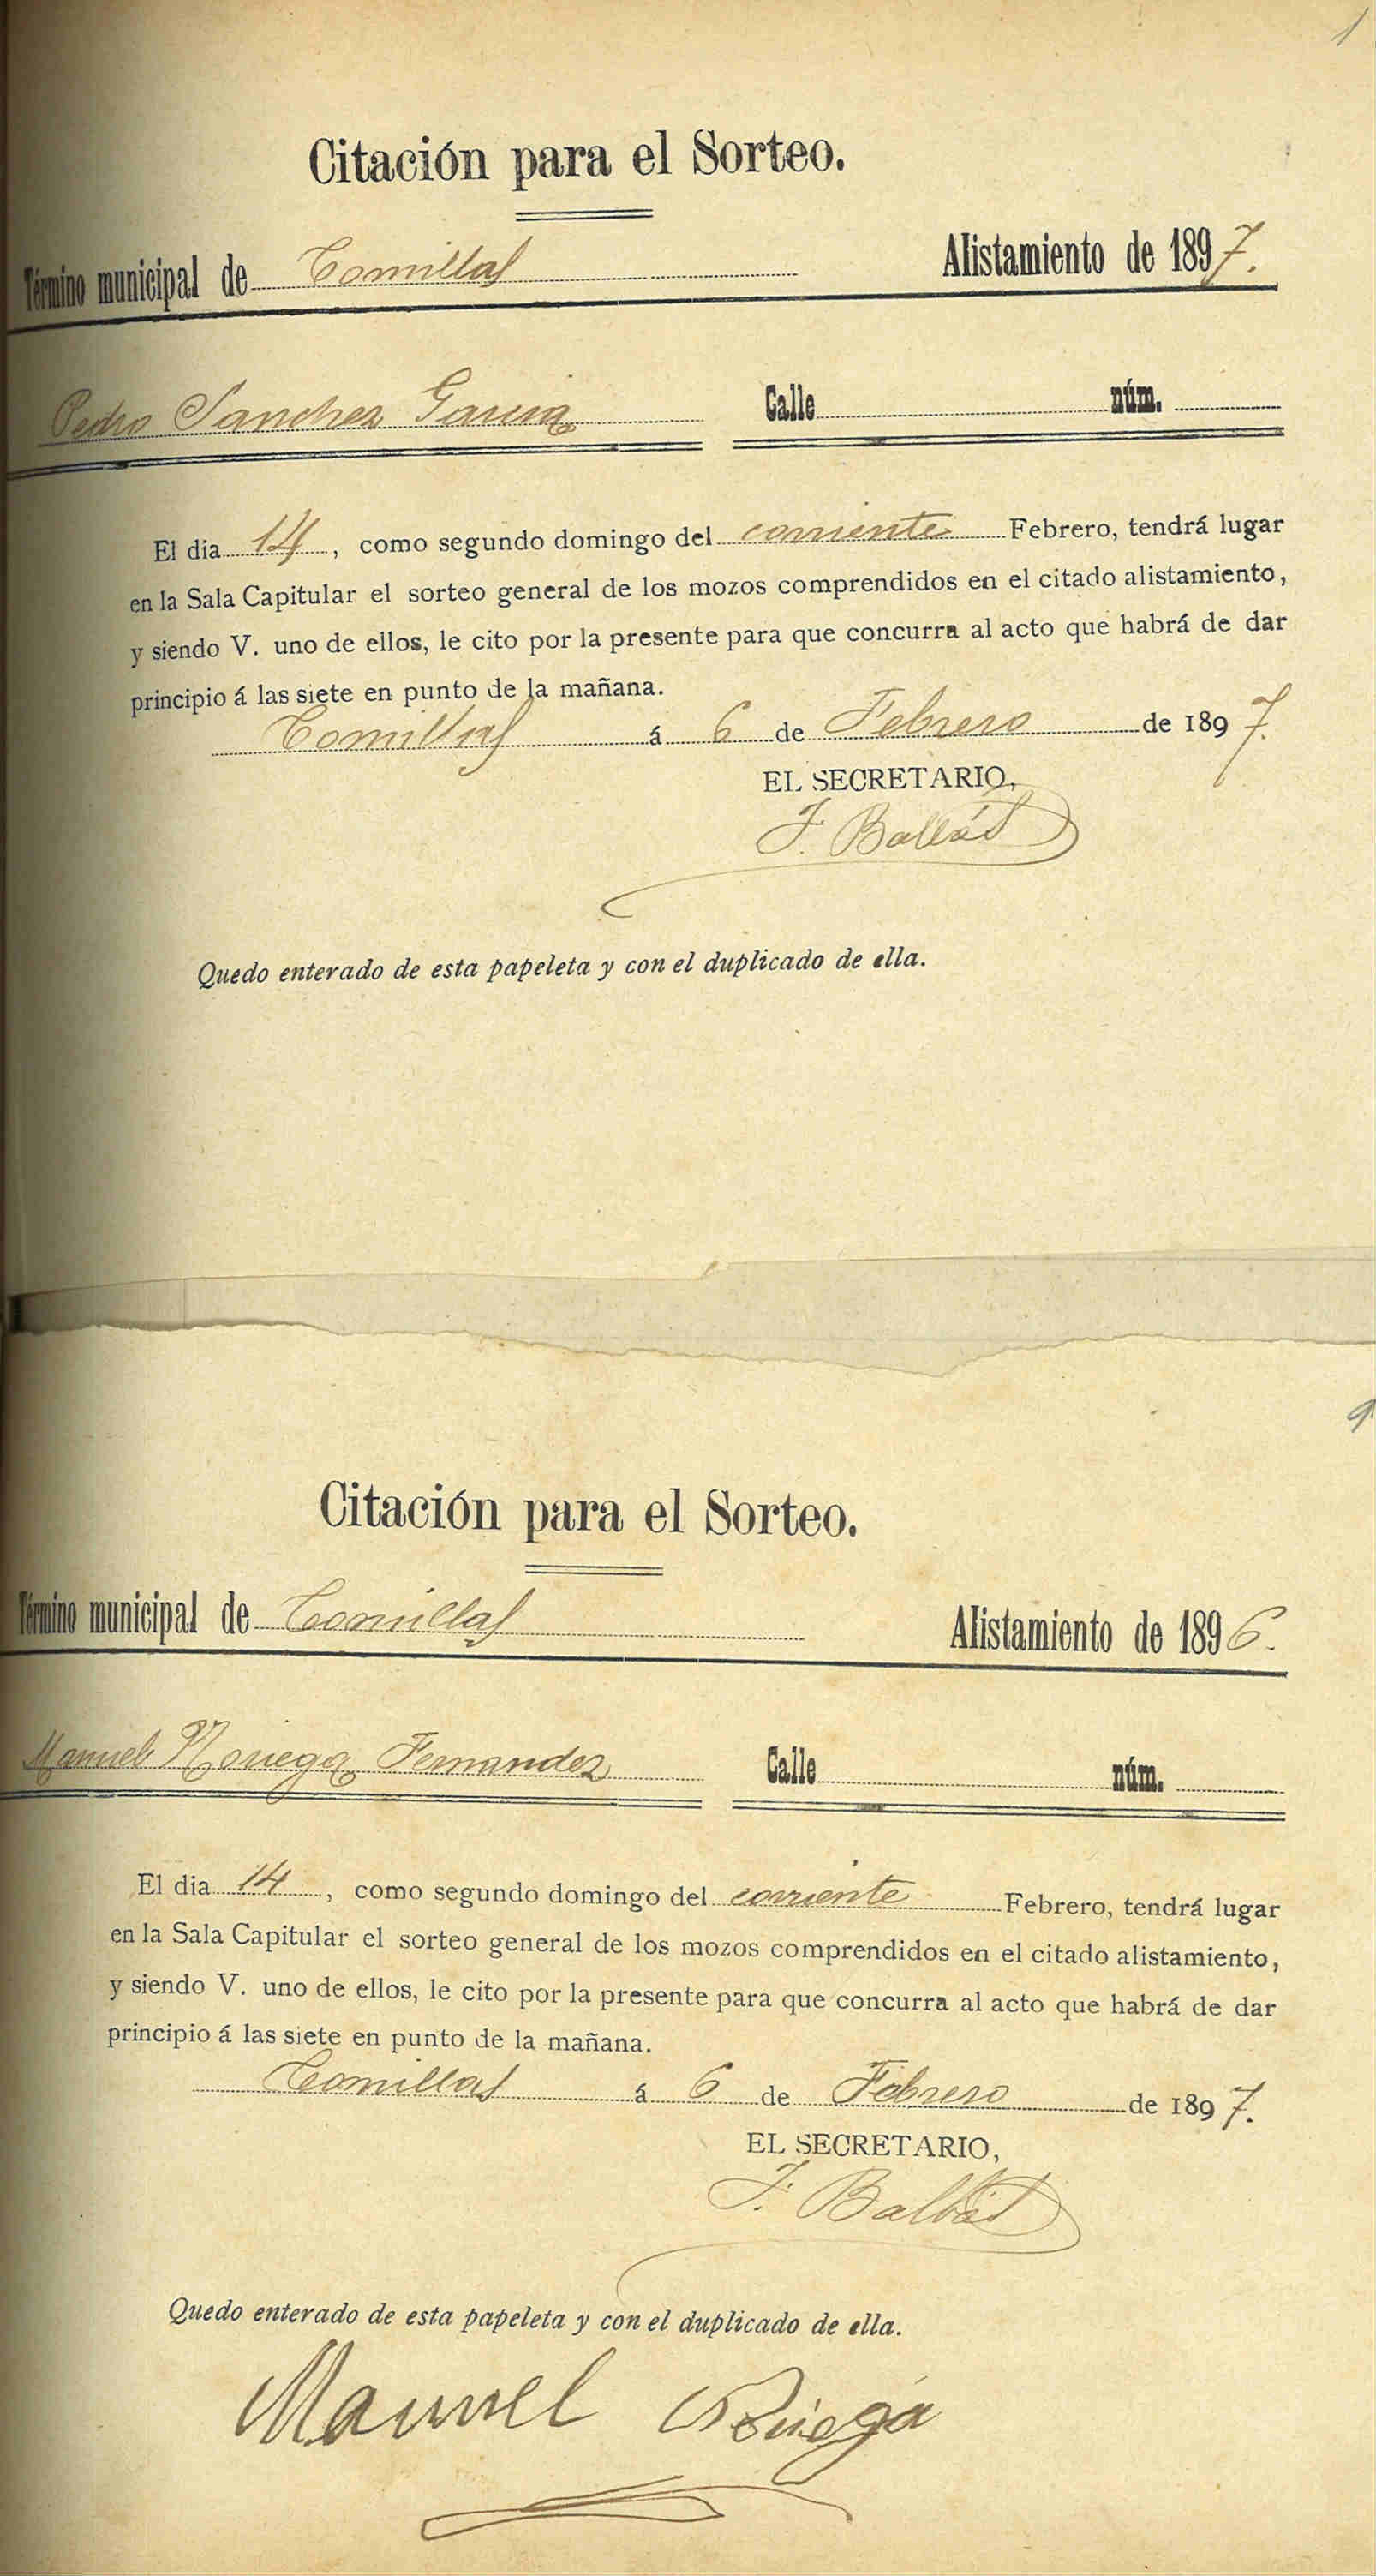 1
Citación para el Sorteo.
Término municipal de Comillas Alistamiento de 1897.
Pedro Sanchez Garcia Calle núm.
El dia 14, como segundo domingo del corriente Febrero, tendrá lugar
en la Sala Capitular el sorteo general de los mozos comprendidos en el citado alistamiento,
y siendo V. uno de ellos, le cito por la presente para que concurra al acto que habrá de dar
principio á las siete en punto de la mañana.
Comillas á 6 de Febrero de 1897.
EL SECRETARIO,
F. Balbás
Quedo enterado de esta papeleta y con el duplicado de ella.
9
Citación para el Sorteo.
Término municipal de Comillas Alistamiento de 1896.
Manuel Noriega Fernandez Calle núm.
El dia 14, como segundo domingo del corriente Febrero, tendrá lugar
en la Sala Capitular el sorteo general de los mozos comprendidos en el citado alistamiento,
y siendo V. uno de ellos, le cito por la presente para que concurra al acto que habrá de dar
principio á las siete en punto de la mañana.
Comillas á 6 de Febrero de 1897.
EL SECRETARIO,
F. Balbás
Quedo enterado de esta papeleta y con el duplicado de ella.
Manuel Noriega